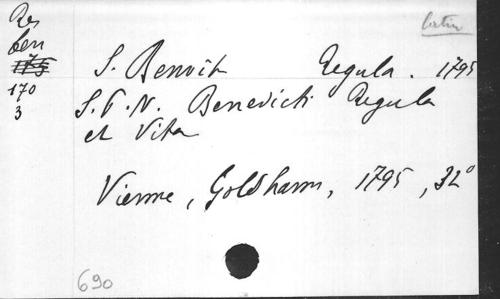 Res
latin
ben
175
S. Benoit Regula. 1795
170
3
S. P. N. Benedicti Regula
et Vita
Vienne, Goldhann, 1795, 32°
690